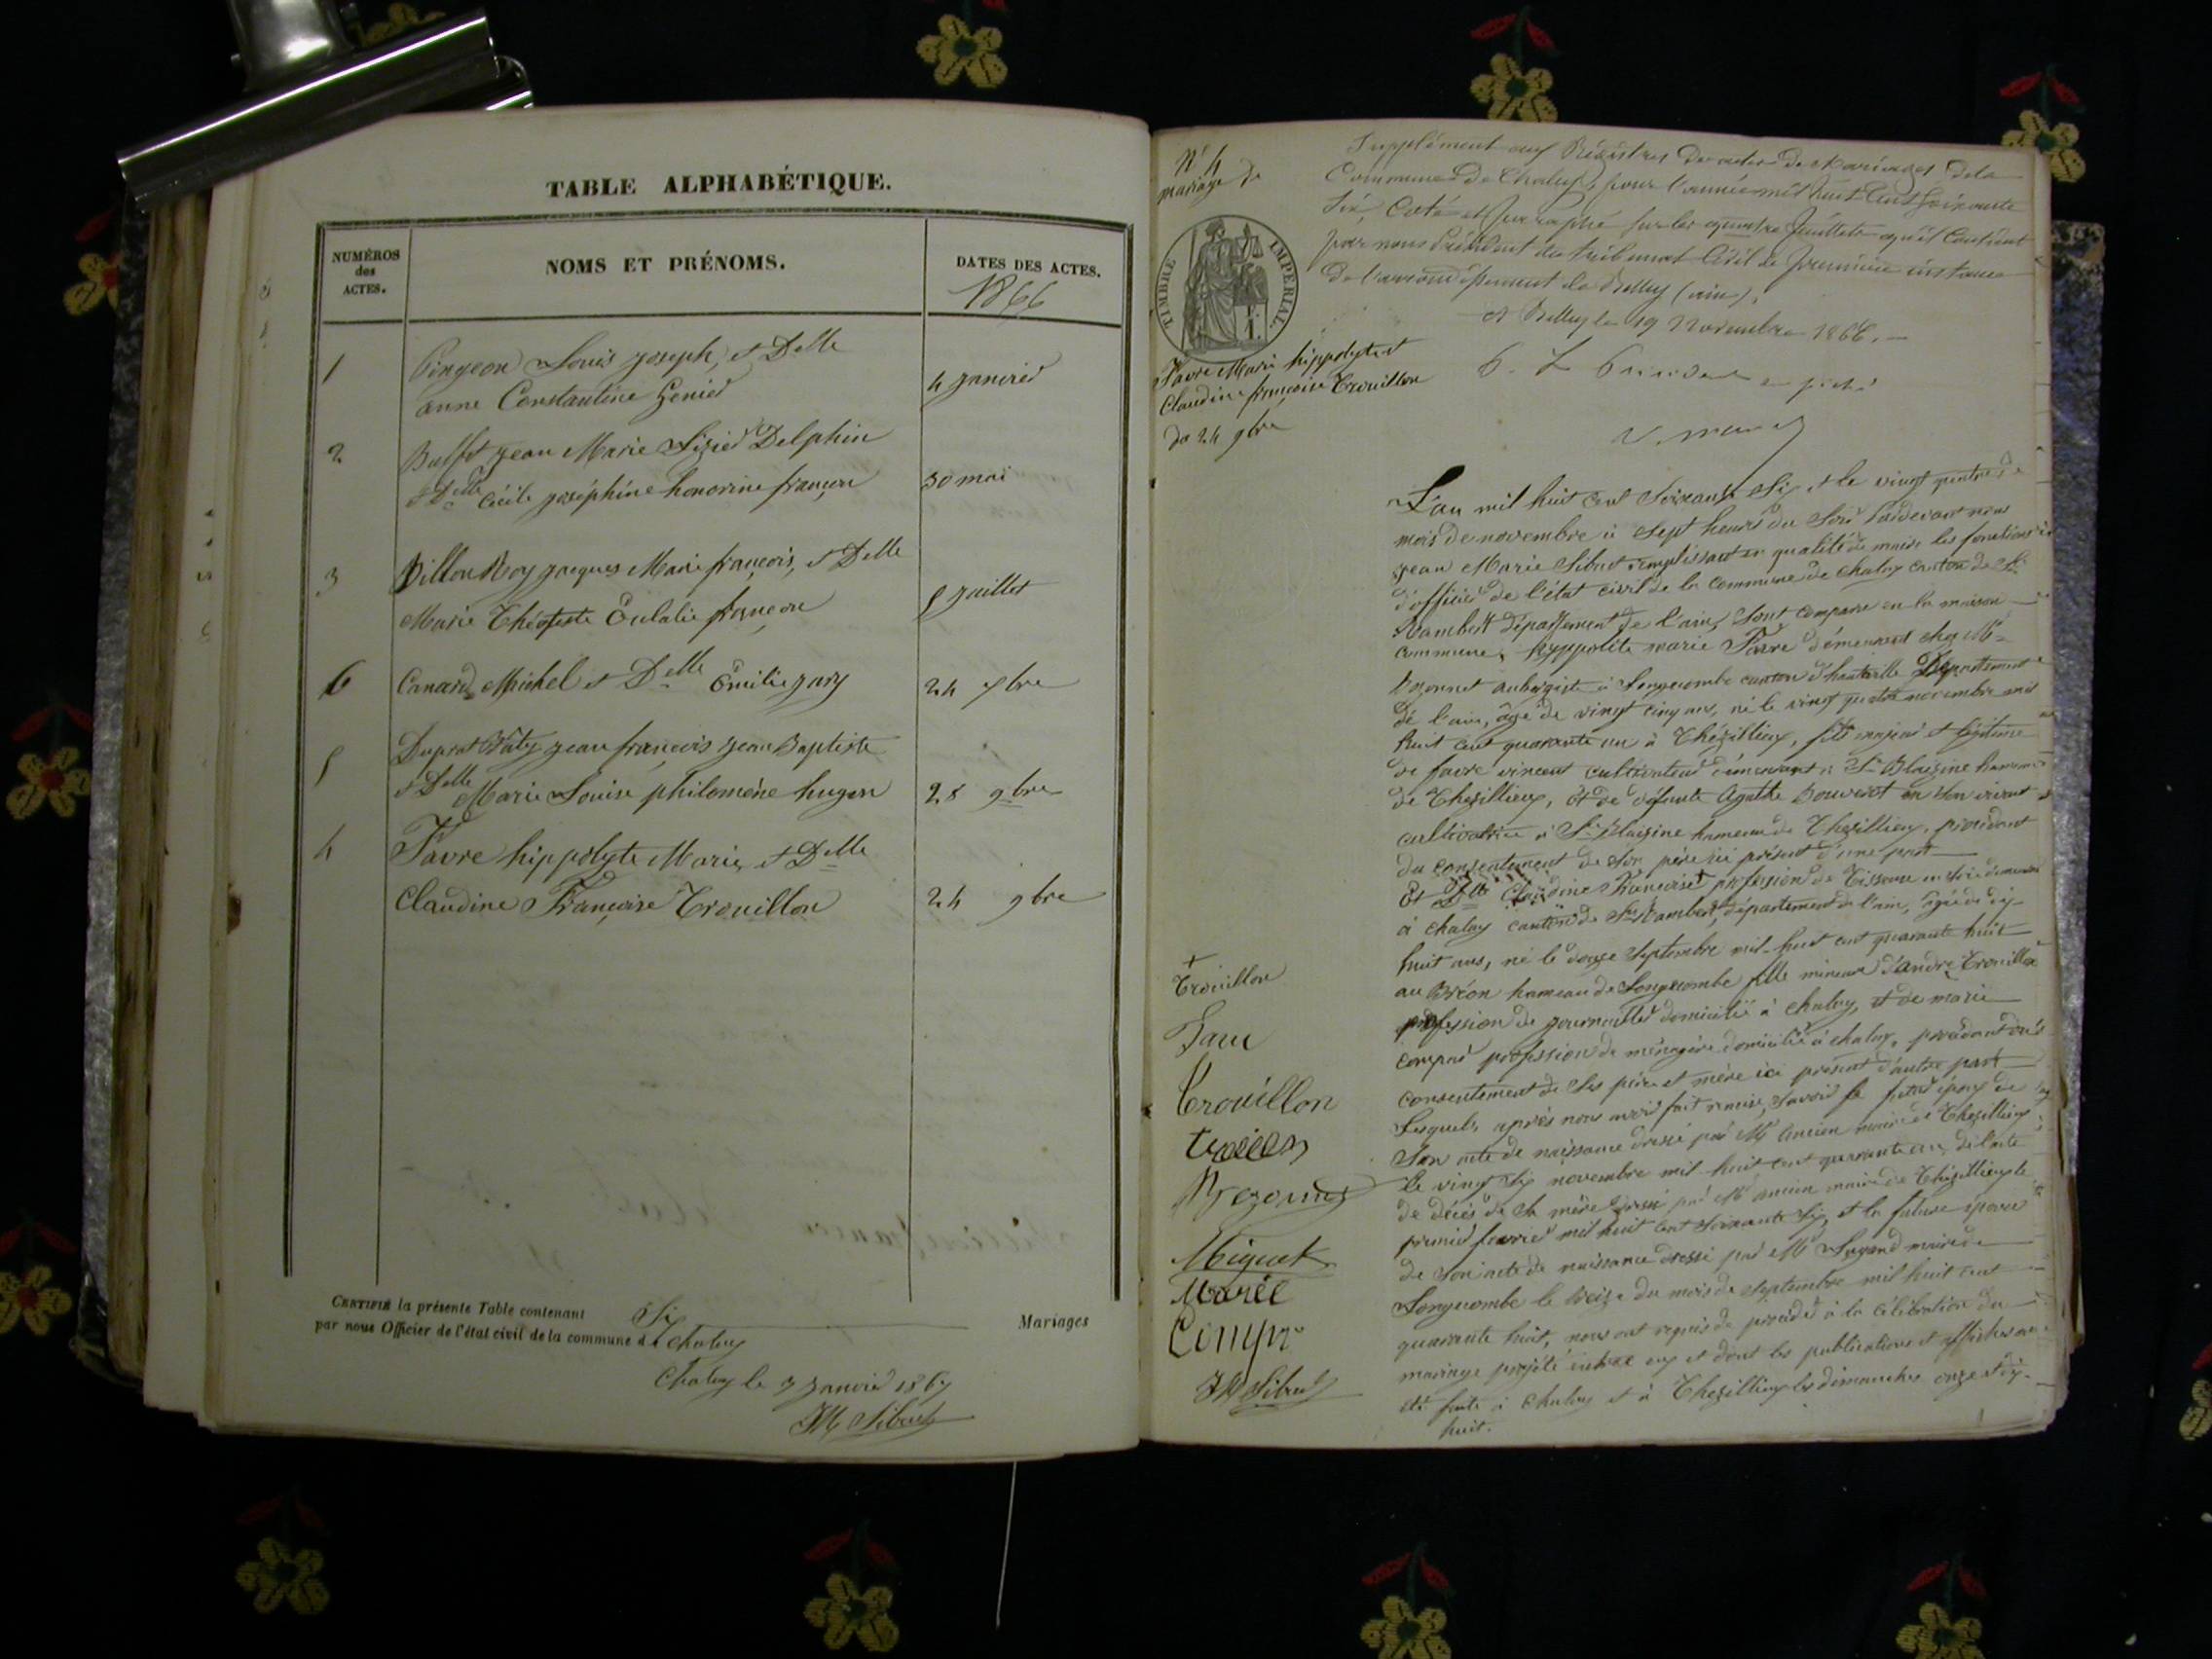 TABLE ALPHABÉTIQUE.
NUMÉROS
des
ACTES.
NOMS ET PRÉNOMS.
DATES DES ACTES.
1866
1
Pingeon Louis joseph, et Delle
anne Constantine Genied
4 janvied
2
Buffet jean Marie Sizied Delphin
et Delle Cécile joséphine honorine françon
30 mai
3
Billon Rey jacques Marie françois, et Delle
Marie Théotiste Eulalie françon
5 juillet
6
Canard Michel et Delle Emilie jary
24 xbre
5
Duprat jean françois jean Baptiste
et Delle Marie Louise philomène hugon
28 9bre
4
Favre hippolyte Marie, et Delle
Claudine Françoise Trouillon
24 9bre
CERTIFIÉ la présente Table contenant Six Mariages
par nous Officier de l'état civil de la commune de Chaley
Chaley le 7 janvied 1867
JM Sibuet
N° 4
mariage de
TIMBRE IMPÉRIAL.
Favre Marie hippolyte et
Claudine françoise Trouillon
du 24 9bre
Supplément aux Régistres des actes de Mariages de la
Commune de Chaley, pour l'année mil huit Cent soixante
Six, Coté et paraphé sur les quatre feuillets qu'il Contient
par nous Président du tribunal Civil de première instance
de l'arrondissement de Belley (ain),
à Belley le 19 Novembre 1866.
L'an mil huit cent Soixante Six et le vingt quatre du
mois de novembre à Sept heures du Soir Pardevant nous
jean Marie Sibuet remplissant en qualité de maire les fonctions
d'officied de l'état civil de la Commune de Chaley Canton de St
Rambert département de l'ain, Sont comparu en la maison
commune, hyppolite marie Favre démeurant chez Mr
Bozonnet aubergiste à Longecombe canton d'hauteville Département
de l'ain, âgé de vingt cinq ans, né le vingt quatre novembre mil
huit cent quarante un à Thézillieu, fils majeur et légitime
de favre vincent cultivateur démeurant à St Blaizine hameau
de Thézillieu, et de défunte Agathe Bouverot en son vivant
cultivatrice à St Blaizine hameau de Thezillieu, procédant
du consentement de Son père ici présent d'une part
Et Delle Claudine Françoise profession de Tisseuse en Soie
à Chaley canton de St Rambert, département de l'ain, âgée de dix
huit ans, né le douze Septembre mil huit cent quarante huit
au Bréon hameau de Longecombe fille mineure d'andré Trouillon
profession de journalier domicilié à Chaley, et de marie
profession de ménagère domiciliée à chaley, procédant du
consentement de Ses père et mère ici présent d'autre part
Lesquels après nous avoir fait remise, Savoir le futur époux de
Son acte de naissance dressé par Mr Ancien maire de Thezillieu
le vingt Six novembre mil huit cent quarante un, de l'acte
de décès de Sa mère dressé par Mr ancien maire de Thézillieu le
premier fevrier mil huit cent Soixante Six, et la future épouse
de Son acte de naissance dressé par Mr maire de
Longecombe le treize du mois de Septembre mil huit cent
quarante huit, nous ont requis de procéder à la célébration du
mariage projeté entre eux et dont les publications et affiches ont
été faite à Chaley et à Thezillieu les dimanches onze et dix-
huit.
Trouillon
Favre
Trouillon
Miguet
Marie
JM Sibuet